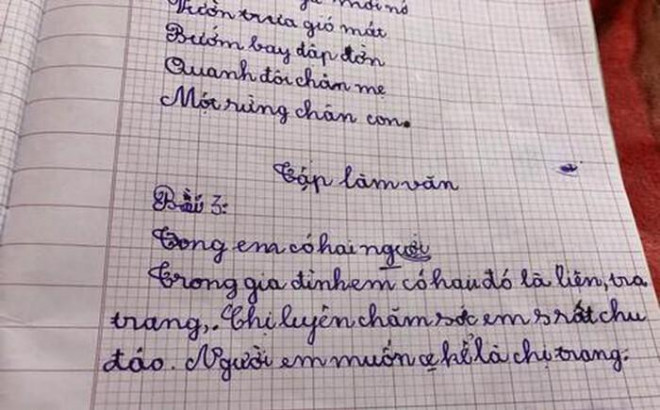 mới nở
Vườn trưa gió mát
Bướm bay dập dờn
Quanh đôi chân mẹ
Một rừng chân con.
Tập làm văn
Bài 3:
Tong em có hai người
Trong gia đình em có hau đó là liên, tra
trang,. Chị luyên chăm sóc em s rất chu
đáo. Người em muốn kể là chị trang.